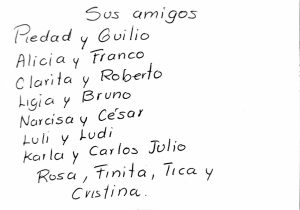 Sus amigos
Piedad y Guilio
Alicia y Franco
Clarita y Roberto
Ligia y Bruno
Narcisa y César
Luli y Ludi
Karla y Carlos Julio
Rosa, Finita, Tica y
Cristina.